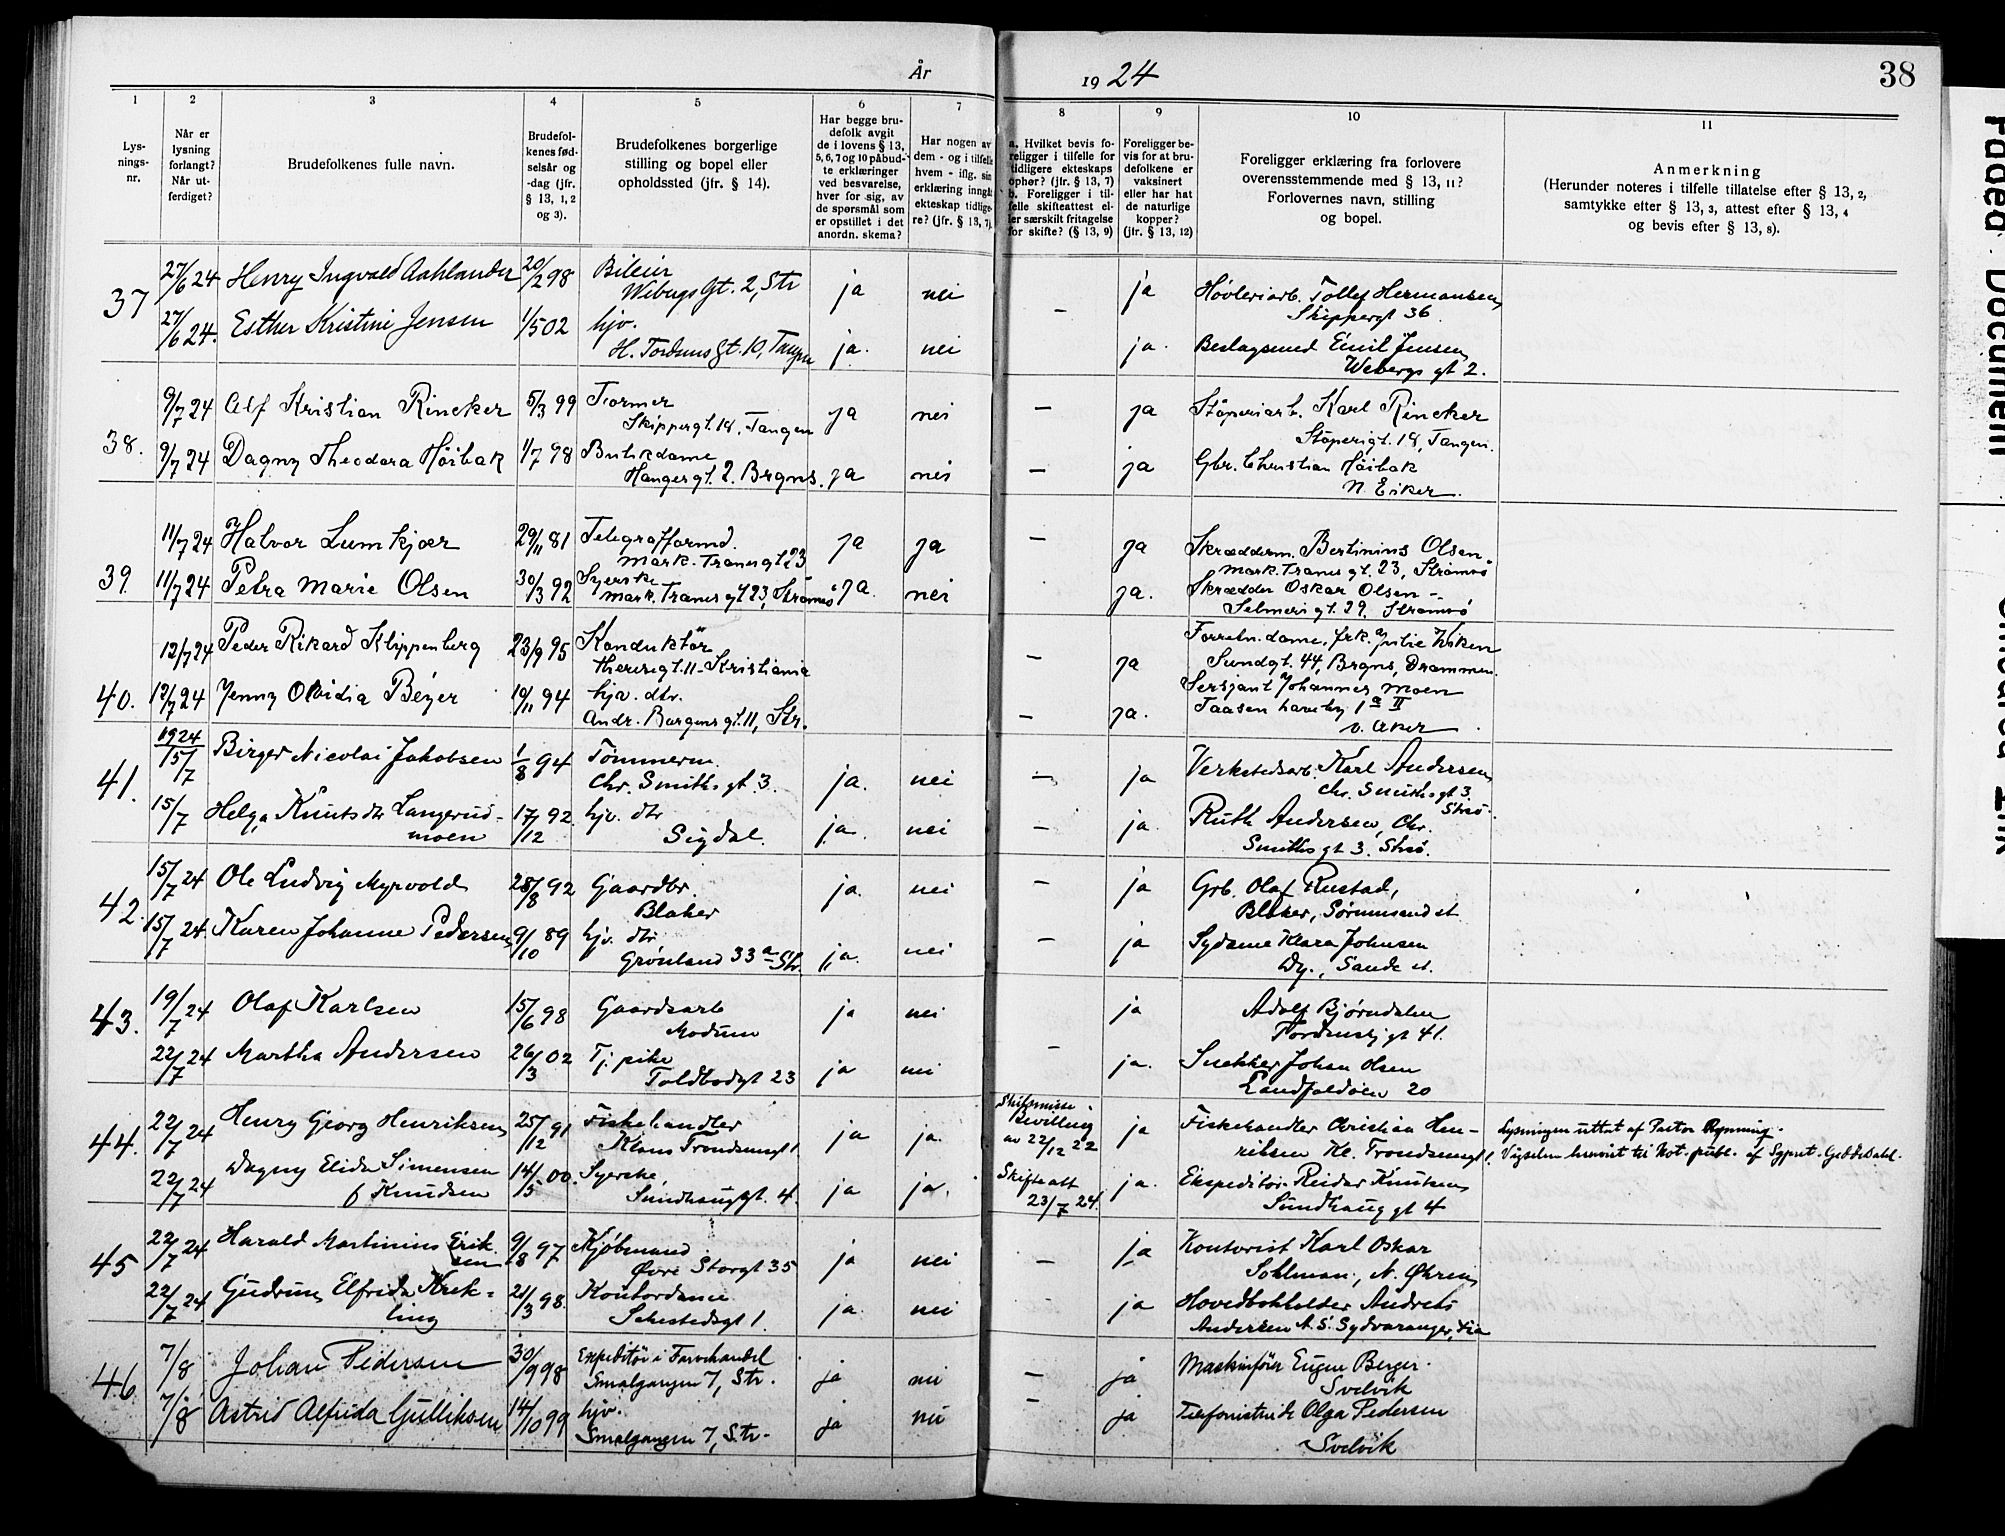 År 1924
38
1
2
3
4
5
6
7
8
9
10
11
Lys-
nings-
nr.
Når er
lysning
forlangt?
Når ut-
ferdiget?
Brudefolkenes fulle navn.
Brudefol-
kenes fød-
selsår og
-dag (jfr.
§ 13, 1, 2
og 3).
Brudefolkenes borgerlige
stilling og bopel eller
opholdssted (jfr. § 14).
Har begge bru-
defolk avgit
de i lovens § 13,
5, 6, 7 og 10 påbud-
te erklæringer
ved besvarelse,
hver for sig, av
de spørsmål som
er opstillet i det
anordn. skema?
Har nogen av
dem - og i tilfelle
hvem - iflg. sin
erklæring inngåt
ekteskap tidlige-
re? (jfr. § 13, 7).
a. Hvilket bevis fo-
religger i tilfelle for
tidligere ekteskaps
ophør? (jfr. § 13, 7)
b. Foreligger i til-
felle skifteattest el-
ler særskilt fritagelse
for skifte? (§ 13, 9)
Foreligger be-
vis for at bru-
defolkene er
vaksinert
eller har hat
de naturlige
kopper?
(jfr. § 13, 12)
Foreligger erklæring fra forlovere
overensstemmende med § 13, 11?
Forlovernes navn, stilling
og bopel.
Anmerkning
(Herunder noteres i tilfelle tillatelse efter § 13, 2,
samtykke efter § 13, 3, attest efter § 13, 4
og bevis efter § 13, 8).
37
27/6 24 Henry Ingvald Aahlander 20/2 98 Bileier ja nei — ja Høvleriarb. Tollef Hermansen
Wibergs Gt. 2, Str Skippergt 36
27/6 24. Esther Kristine Jensen 1/5 02 hjv. ja. nei ja. Beslagsmed Emil Jensen
H. Tordsens Gt. 10, Tangen Webergs gt 2.
38.
9/7 24 Alf Kristian Rincker 5/3 99 Former ja nei — ja Støperiarb. Karl Rincker
Skippergt. 18, Tangen Støperigt. 18, Tangen.
9/7 24 Dagny Theodora Høibak 1/7 98 Butikdame ja nei — ja Gbr. Christian Høibak
Haugergt. 2. Brgns. N. Eiker.
39.
11/7 24 Halvor Lumkjær 29/11 81 Telegrafformd. ja ja — ja Skrædderm. Bertinius Olsen
Mark. Tranes gt 23 Mark. Tranes gt. 23, Strømsø
11/7 24 Petra Marie Olsen 30/3 92 Syerske ja. nei ja. Skrædder Oskar Olsen
Mark. Tranes gt 23, Strømsø Selmers gt. 29, Strømsø
40.
12/7 24 Peder Rikard Klippenberg 23/9 95 Konduktør — ja Forretn.dame, frk. Julie Wiken
Theresegt. 11 - Kristiania Sundgt. 44, Brgns, Drammen.
12/7 24 Jenny Ovidia Beyer 19/11 94 hjv. dtr. — ja. Sersjant Johannes Moen
Andr. Bergers gt. 11, Str. Taasen haveby 1a II
v. Aker
41.
1924
15/7 Birger Nicolai Jakobsen 1/8 94 Tømmerm. ja. nei — ja Verkstedsarb. Karl Andersen
Chr. Smiths gt 3. Chr. Smiths gt 3.
Strsø.
15/7 Helga Knutsdtr Langerud- 17/12 92. hjv. dtr ja nei — ja. Ruth Andersen, Chr.
moen Sigdal. Smiths gt 3. Strsø.
42.
15/7 24 Ole Ludvig Myrvold 28/8 92 Gaardbr. ja. nei — ja Grb. Olaf Rustad,
Blaker Blaker, Sørumsand st
15/7 24. Karen Johanne Pedersen 9/10 89 hjv. dtr ja. nei — ja Sydame Klara Johnsen
Grønland 33a Str. Dy., Sande st.
43.
19/7 24 Olaf Karlsen 15/6 98 Gaardsarb ja nei ja Adolf Bjørndalen
Modum Tordenskj gt 41.
22/7 24 Martha Andersen 26/3 02 Tj. pike ja nei — ja. Snekker Johan Olsen
Toldbodgt 23 Landfaldøen 20
44.
22/7 24 Henry Georg Henriksen 25/12 91 Fiskehandler ja ja. Bevilling ja Fiskehandler Kristian Hen-
Klaus Trondsensgt 1 av 22/12 22 riksen Kl. Trondsensgt 1.
Lysningen uttat af Pastor Rynning.
Vigselen henvist til Not. publ. af Sogprst. Geddedahl.
22/7 24 Dagny Elida Simensen 14/5 00. Syerske, ja ja. Skifteatt ja. Ekspeditør Reidar Knutsen
f Knudsen Sundhauggt. 4. 23/7 24. Sundhauggt 4
45
22/7 24 Harald Martinius Erik- 9/8 97 Kjøbmand ja nei — ja Kontorist Karl Oskar
sen Øvre Storgt 35 Sohlman, N. Øhren
22/7 24. Gudrun Elfrida Krek- 21/3 98. Kontordame ja. nei ja Hovedbokholder Andreas
ling Sehestedsgt 1. Andersen A. S. Sydvaranger, Kia
46
7/8 Johan Pedersen 30/9 98 Expeditør i Farvehandel ja nei — ja Maskinfører Eugen Berger.
Smalgangen 7, Str. Svelvik
7/8 Astrid Alfrida Gulliksen 14/10 99 hjv. ja nei — ja Telefonistinde Olga Pedersen
Smalgangen 7, Str. Svelvik
Faded Document